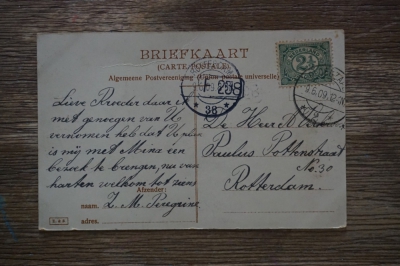 BRIEFKAART
(CARTE POSTALE)
Algemeene Postvereeniging (Union postale universelle)
2½
258
38
Lieve Broeder daar ik
met genoegen van U
vernomen heb dat U
is mij met Minx een
bezoek te brengen, nu van
harten welkom tot ziens
Afzender:
naam. Z. M. Peregrine
adres.
De Heer
Paulus Potterstraat
No. 30
Rotterdam.